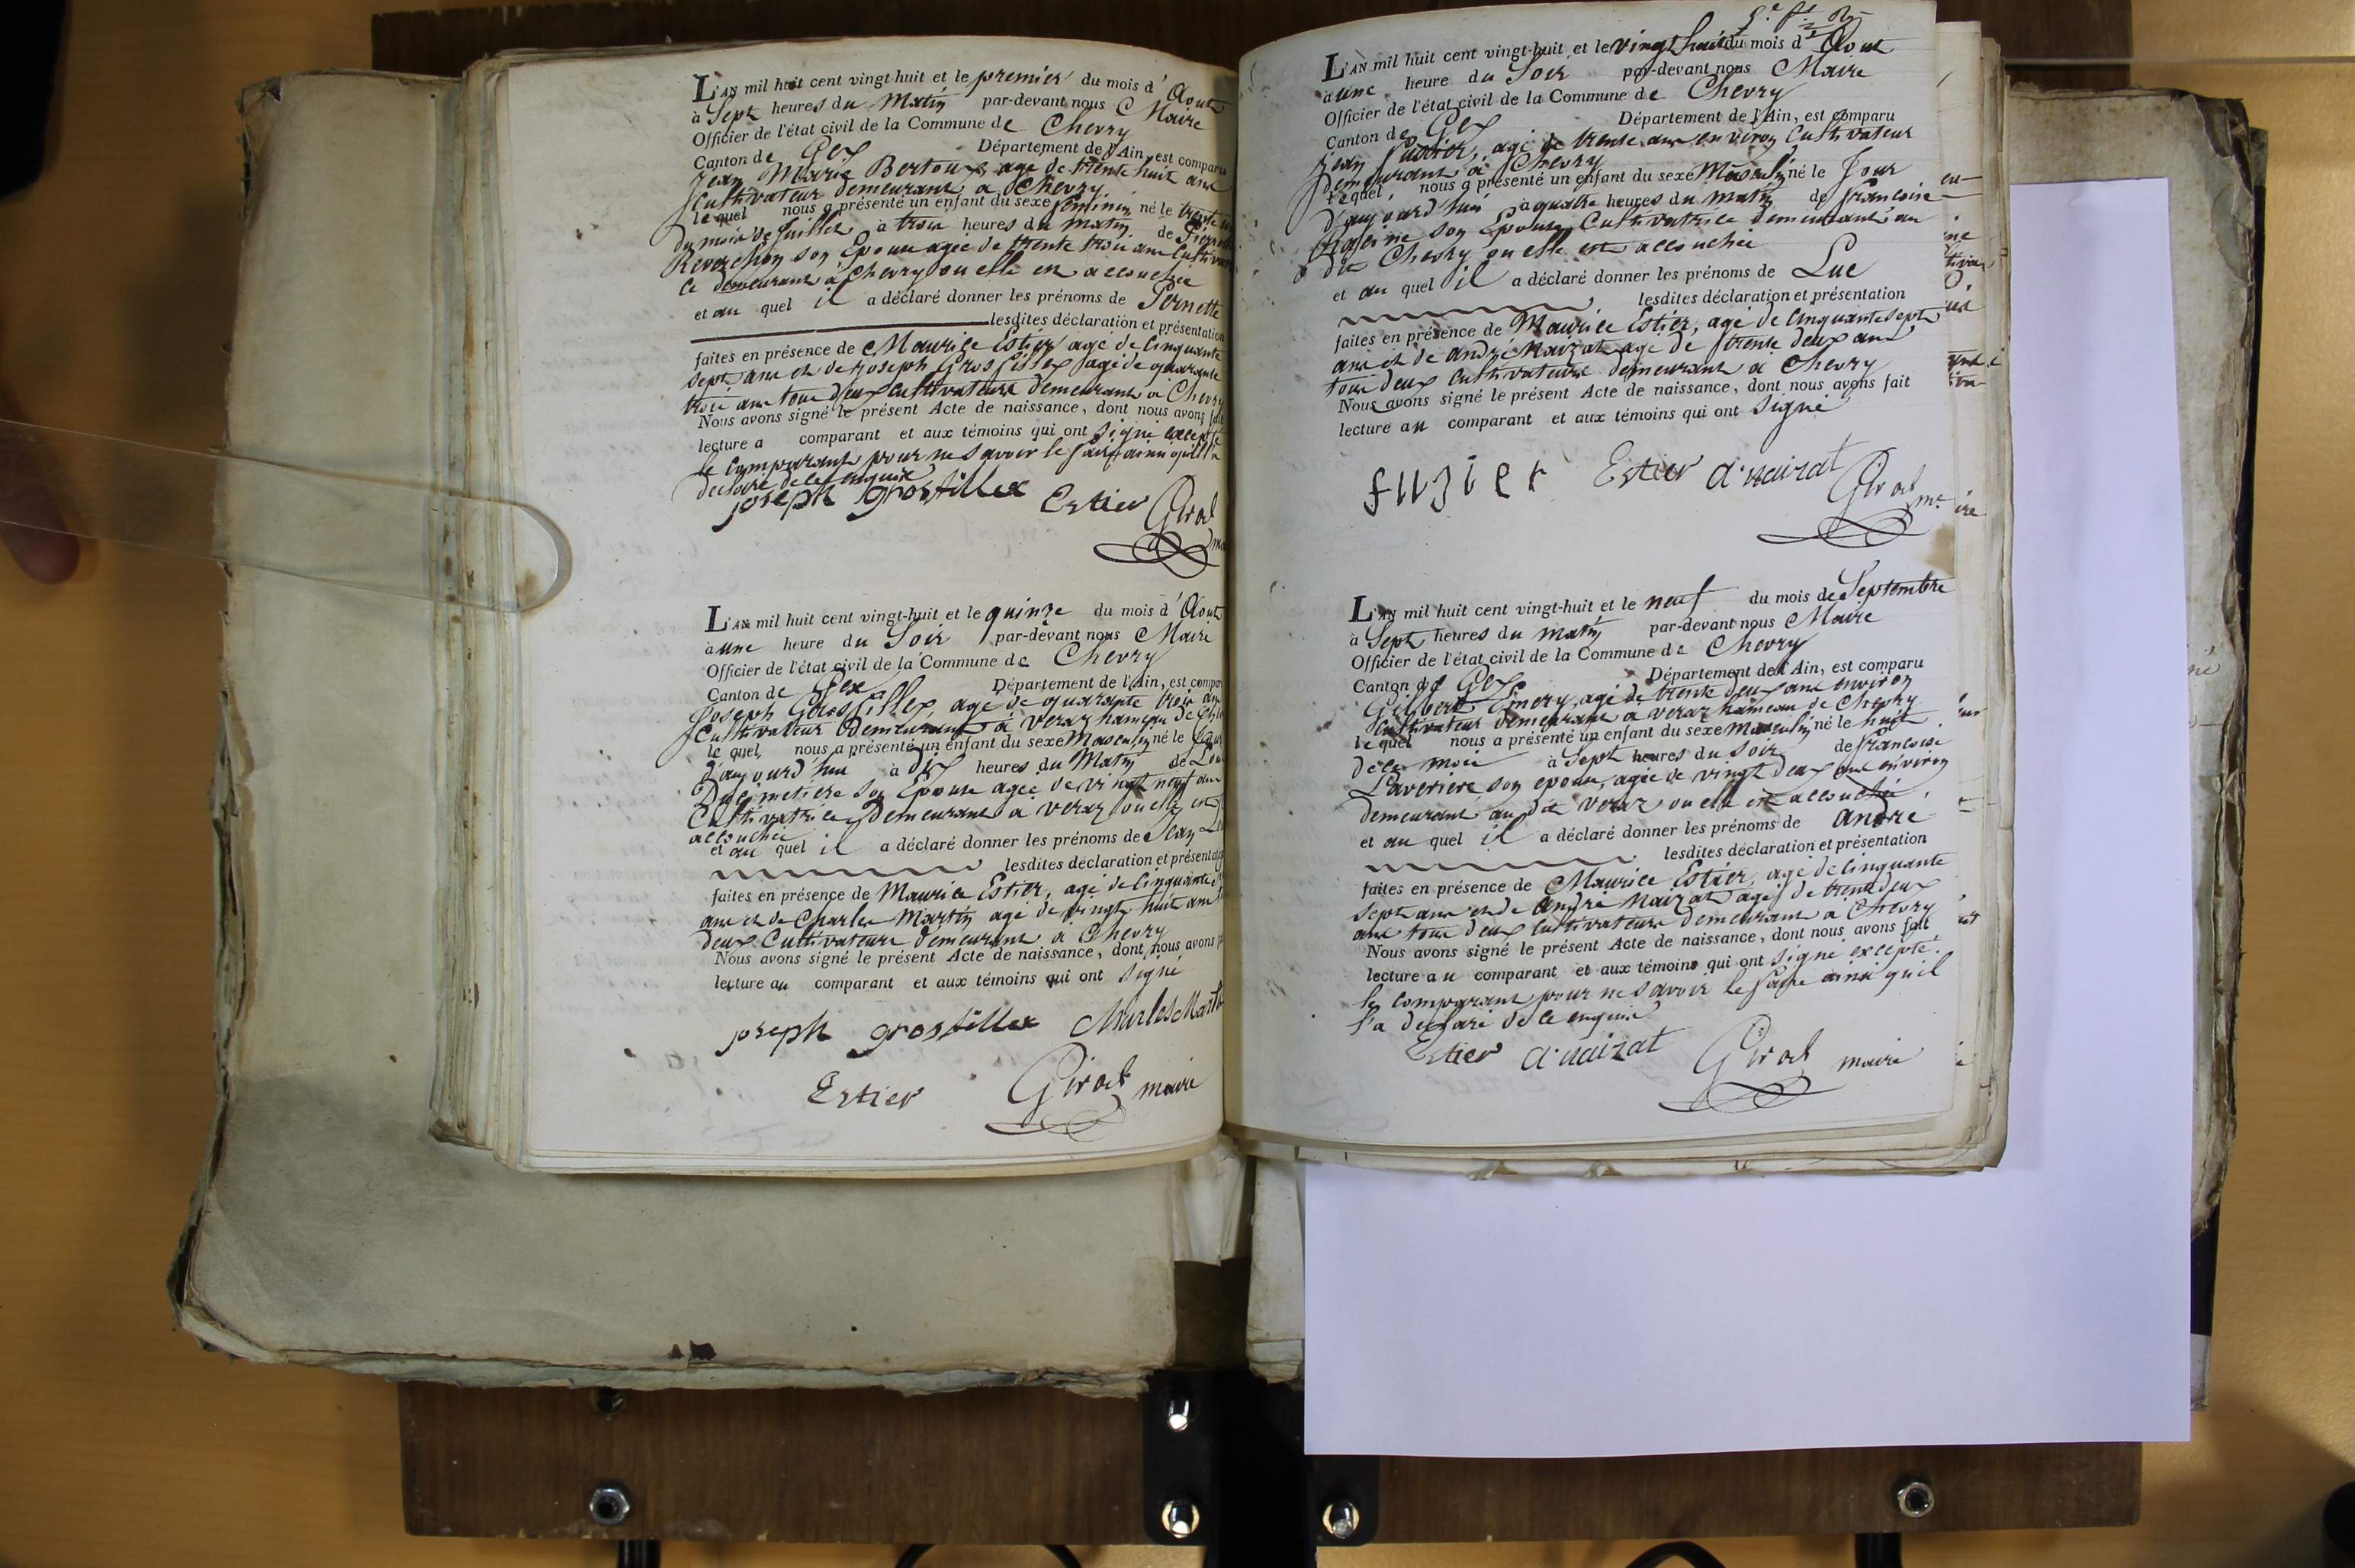 L'AN mil huit cent vingt-huit et le premier du mois d'Aout
à Sept heures du Matin par-devant nous Maire
Officier de l'état civil de la Commune de Chevry
Canton de Gex Département de l'Ain, est comparu
Jean Marie Bertoux, agé de trente huit ans
Cultivateur demeurant à Chevry
lequel nous a présenté un enfant du sexe féminin né le trente
du mois de Juillet à trois heures du Matin de
Reverchon son Epouse agée de trente trois ans
ce demeurant à Chevry ou elle est accouchée
et au quel il a déclaré donner les prénoms de Pernette
lesdites déclaration et présentation
faites en présence de Maurice Estier agé de Cinquante
sept ans et de Joseph Grosfillex agé de quarante
trois ans tous deux cultivateurs demeurant à Chevry
Nous avons signé le présent Acte de naissance, dont nous avons fait
lecture a comparant et aux témoins qui ont signé excepté
le Comparant pour ne savoir le faire ainsi qu'il l'a
déclaré de ce enquis
joseph grosfillex Estier Girod
L'AN mil huit cent vingt-huit et le quinze du mois d'Aout
à une heure du Soir par-devant nous Maire
Officier de l'état civil de la Commune de Chevry
Canton de Gex Département de l'Ain, est compar
Joseph Grosfillex, agé de quarante trois ans
Cultivateur demeurant à Veraz hameau de
le quel nous a présenté un enfant du sexe Masculin né le Jour
d'aujourd'hui à dix heures du Matin de
Ducimetiere son Epouse agée de vingt neuf ans
Cultivatrice Demeurant à Veraz ou elle est
accouchée
et au quel il a déclaré donner les prénoms de Jean
lesdites déclaration et présentation
faites en présence de Maurice Estier, agé de Cinquante
ans et de Charles Martin agé de vingt huit ans
deux Cultivateurs demeurant à Chevry
Nous avons signé le présent Acte de naissance, dont nous avons
lecture au comparant et aux témoins qui ont signé
joseph grosfillex Charles Martin
Estier Girod maire
L'AN mil huit cent vingt-huit et le vingt huit du mois d'Aout
à une heure du Soir par-devant nous Maire
Officier de l'état civil de la Commune de Chevry
Canton de Gex Département de l'Ain, est comparu
Jean Fusier, agé de trente ans environ Cultivateur
demeurant à Chevry
lequel nous a présenté un enfant du sexe Masculin né le Jour
d'aujourd'hui à quatre heures du matin de francoise
son Epouse Cultivatrice demeurant au
dit Chevry ou elle est accouchée
et au quel il a déclaré donner les prénoms de Luc
lesdites déclaration et présentation
faites en présence de Maurice Estier, agé de Cinquante sept
ans et de andré Naizat agé de trente deux ans
tous deux cultivateurs demeurant à Chevry
Nous avons signé le présent Acte de naissance, dont nous avons fait
lecture au comparant et aux témoins qui ont signé
fuzier Estier a. naizat Girod
L'AN mil huit cent vingt-huit et le neuf du mois de Septembre
à Sept heures du matin par-devant nous Maire
Officier de l'état civil de la Commune de Chevry
Canton de Gex Département de l'Ain, est comparu
Gilbert Emery, agé de trente deux ans environ
Cultivateur demeurant à veraz hameau de Chevry
lequel nous a présenté un enfant du sexe Masculin né le huit
de ce mois à Sept heures du soir de francoise
Laveriere son epouse, agée de vingt deux ans environ
demeurant au dit veraz ou elle est accouchée
et au quel il a déclaré donner les prénoms de andré
lesdites déclaration et présentation
faites en présence de Maurice Estier, agé de Cinquante
sept ans et de André Naizat agé de trente deux
ans tous deux Cultivateurs demeurant à Chevry
Nous avons signé le présent Acte de naissance, dont nous avons fait
lecture au comparant et aux témoins qui ont signé excepté
le comparant pour ne savoir le faire ainsi qu'il
l'a déclaré de ce enquis
Estier a. naizat Girod maire